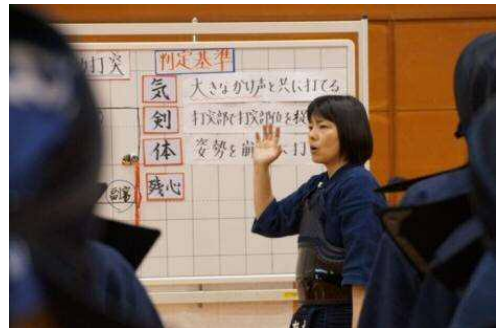 打突 判定基準
気 大きなかけ声と共に打てる
剣 打突部で打突部位を
体 姿勢を崩 に打
残心